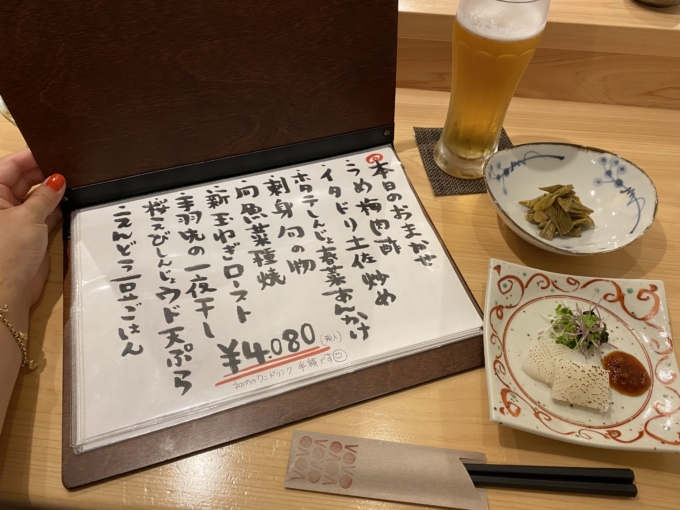 本日のおまかせ
うめ梅肉酢
イタドリ土佐炒め
ホタテしんじょ春菜あんかけ
刺身旬の物
旬魚菜種焼
新玉ねぎロースト
手羽先の一夜干し
桜えびしんじょウド天ぷら
えんどう豆ごはん
¥4.080
(税込)
初めのワンドリンク 半額です